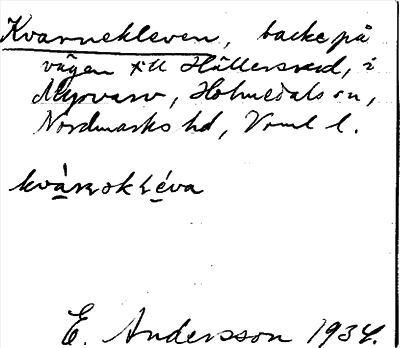 Kvarnekleven, backe på
vägen till Hällersrud, i
Myrvarv, Holmedals sn,
Nordmarks hd, Vrml l.
kvárnəkléva
E. Andersson 1934.